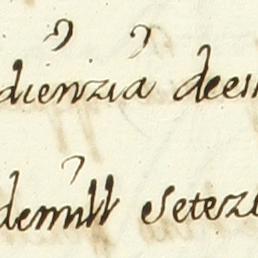 dienzia dees
demill setez